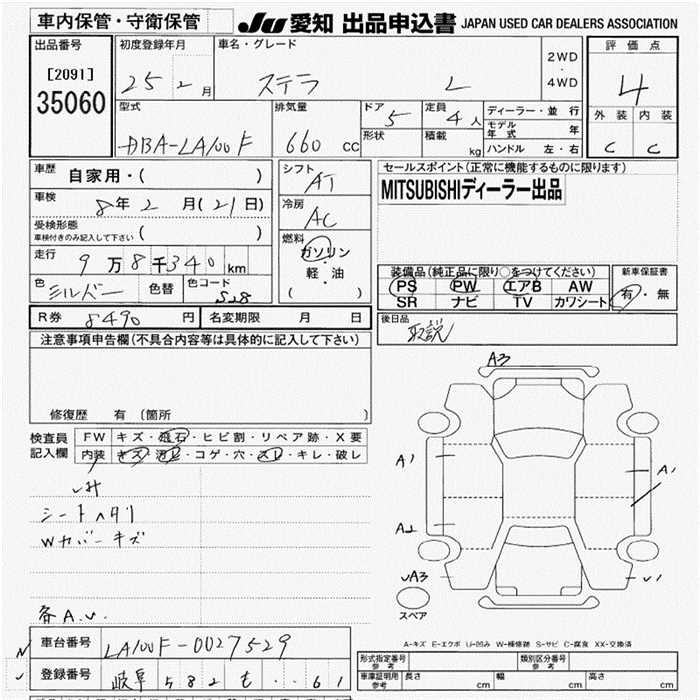 車内保管・守衛保管
JU 愛知 出品申込書 JAPAN USED CAR DEALERS ASSOCIATION
出品番号
[2091]
35060
初度登録年月
25 2 月
車名・グレード
ステラ L
2WD
・
4WD
評価点
4
外装 内装
C C
型式
DBA-LA100F
排気量
660 cc
ドア
5
定員
4 人
形状
積載
kg
ディーラー・並行
モデル年式 年
ハンドル 左・右
車歴
自家用・( )
車検
8年 2 月(21日)
受検形態
車検付きのみ記入して下さい ( )
走行
9万8千340km
色
シルバー
色替
色コード
S28
シフト
AT
冷房
AC
燃料
ガソリン
・
軽・油
( )
セールスポイント(正常に機能するものに限ります)
MITSUBISHIディーラー出品
装備品(純正品に限り○をつけてください)
PS PW エアB AW
SR ナビ TV カワシート
新車保証書
有・無
R券 8490 円
名変期限 月 日
後日品
取説
注意事項申告欄(不具合内容等は具体的に記入して下さい)
修復歴 有 〔箇所 〕
検査員
記入欄
FW キズ・飛石・ヒビ割・リペア跡・X要
内装 キズ・汚レ・コゲ・穴・スレ・キレ・破レ
シートヘタリ
Wカバーキズ
各A.U.
A3
A1
A1
A2
UA3
U1
スペア
A-キズ E-エクボ U-凹み W-補修跡 S-サビ C-腐食 XX-交換済
車台番号
LA100F-0027529
登録番号
岐阜 582 も ・・61
形式指定番号
参考
類別区分番号
参考
車庫証明用
参考
長さ cm
幅 cm
高さ cm